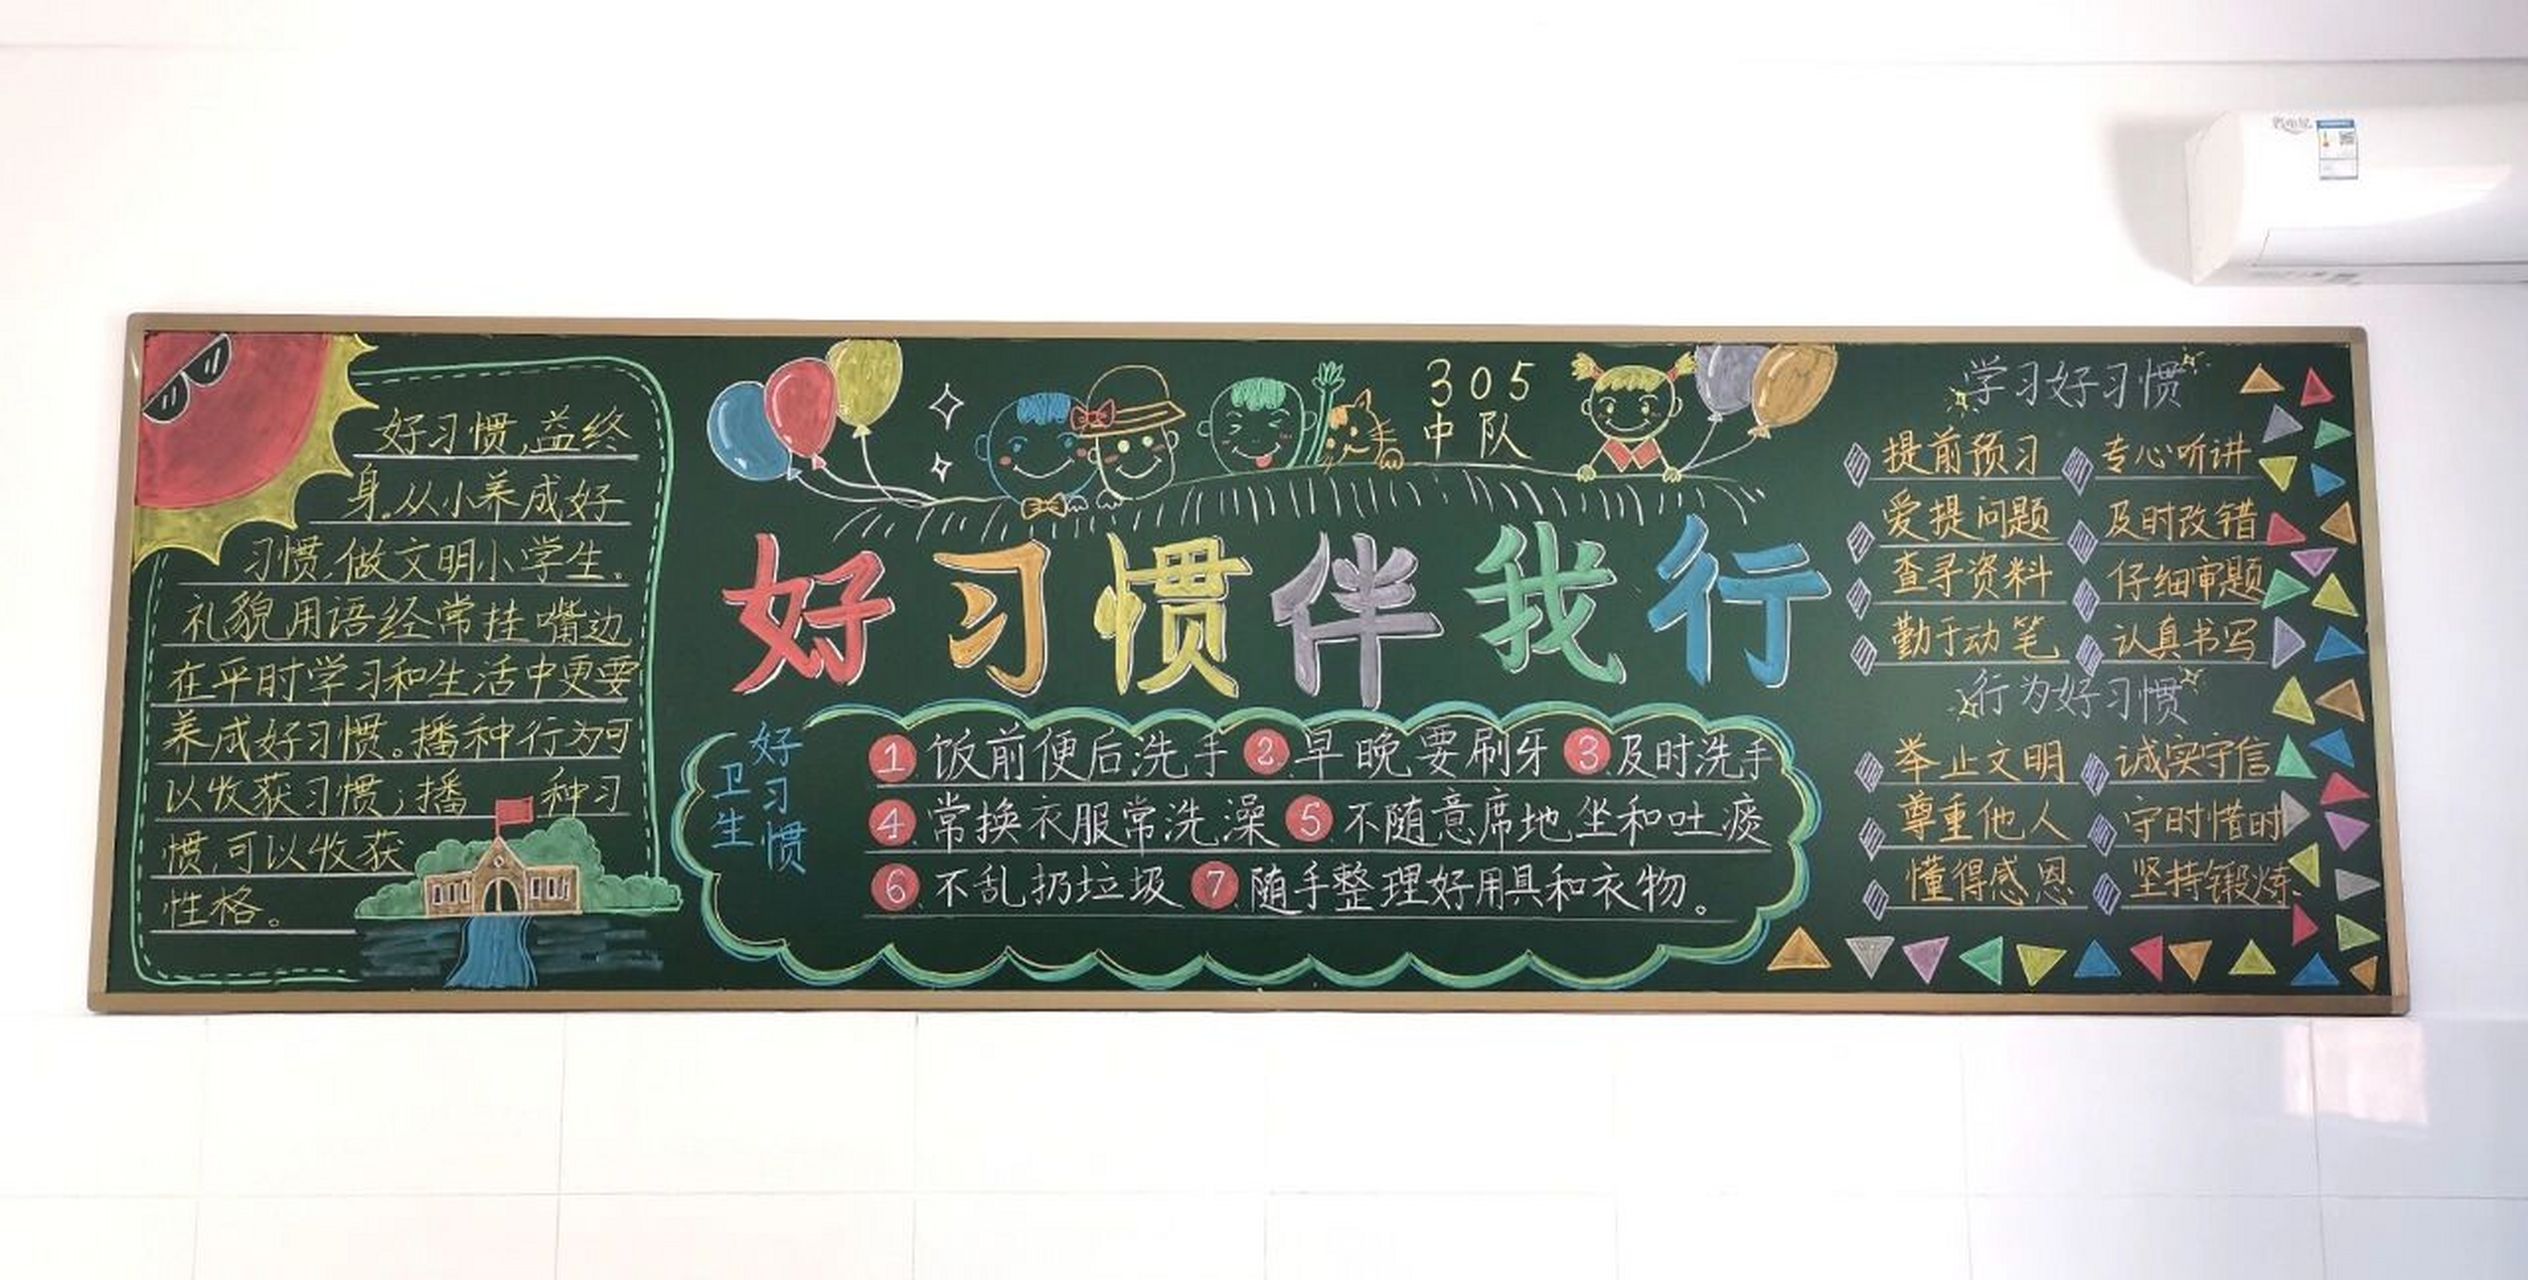 好习惯,益终
身。从小养成好
习惯,做文明小学生。
礼貌用语经常挂嘴边
在平时学习和生活中更要
养成好习惯。播种行为可
以收获习惯;播 种习
惯,可以收获
性格。
305
中队
好习惯伴我行
卫生
好习惯
1 饭前便后洗手 2 早晚要刷牙 3 及时洗手
4 常换衣服常洗澡 5 不随意席地坐和吐痰
6 不乱扔垃圾 7 随手整理好用具和衣物。
学习好习惯
提前预习 专心听讲
爱提问题 及时改错
查寻资料 仔细审题
勤于动笔 认真书写
行为好习惯
举止文明 诚实守信
尊重他人 守时惜时
懂得感恩 坚持锻炼